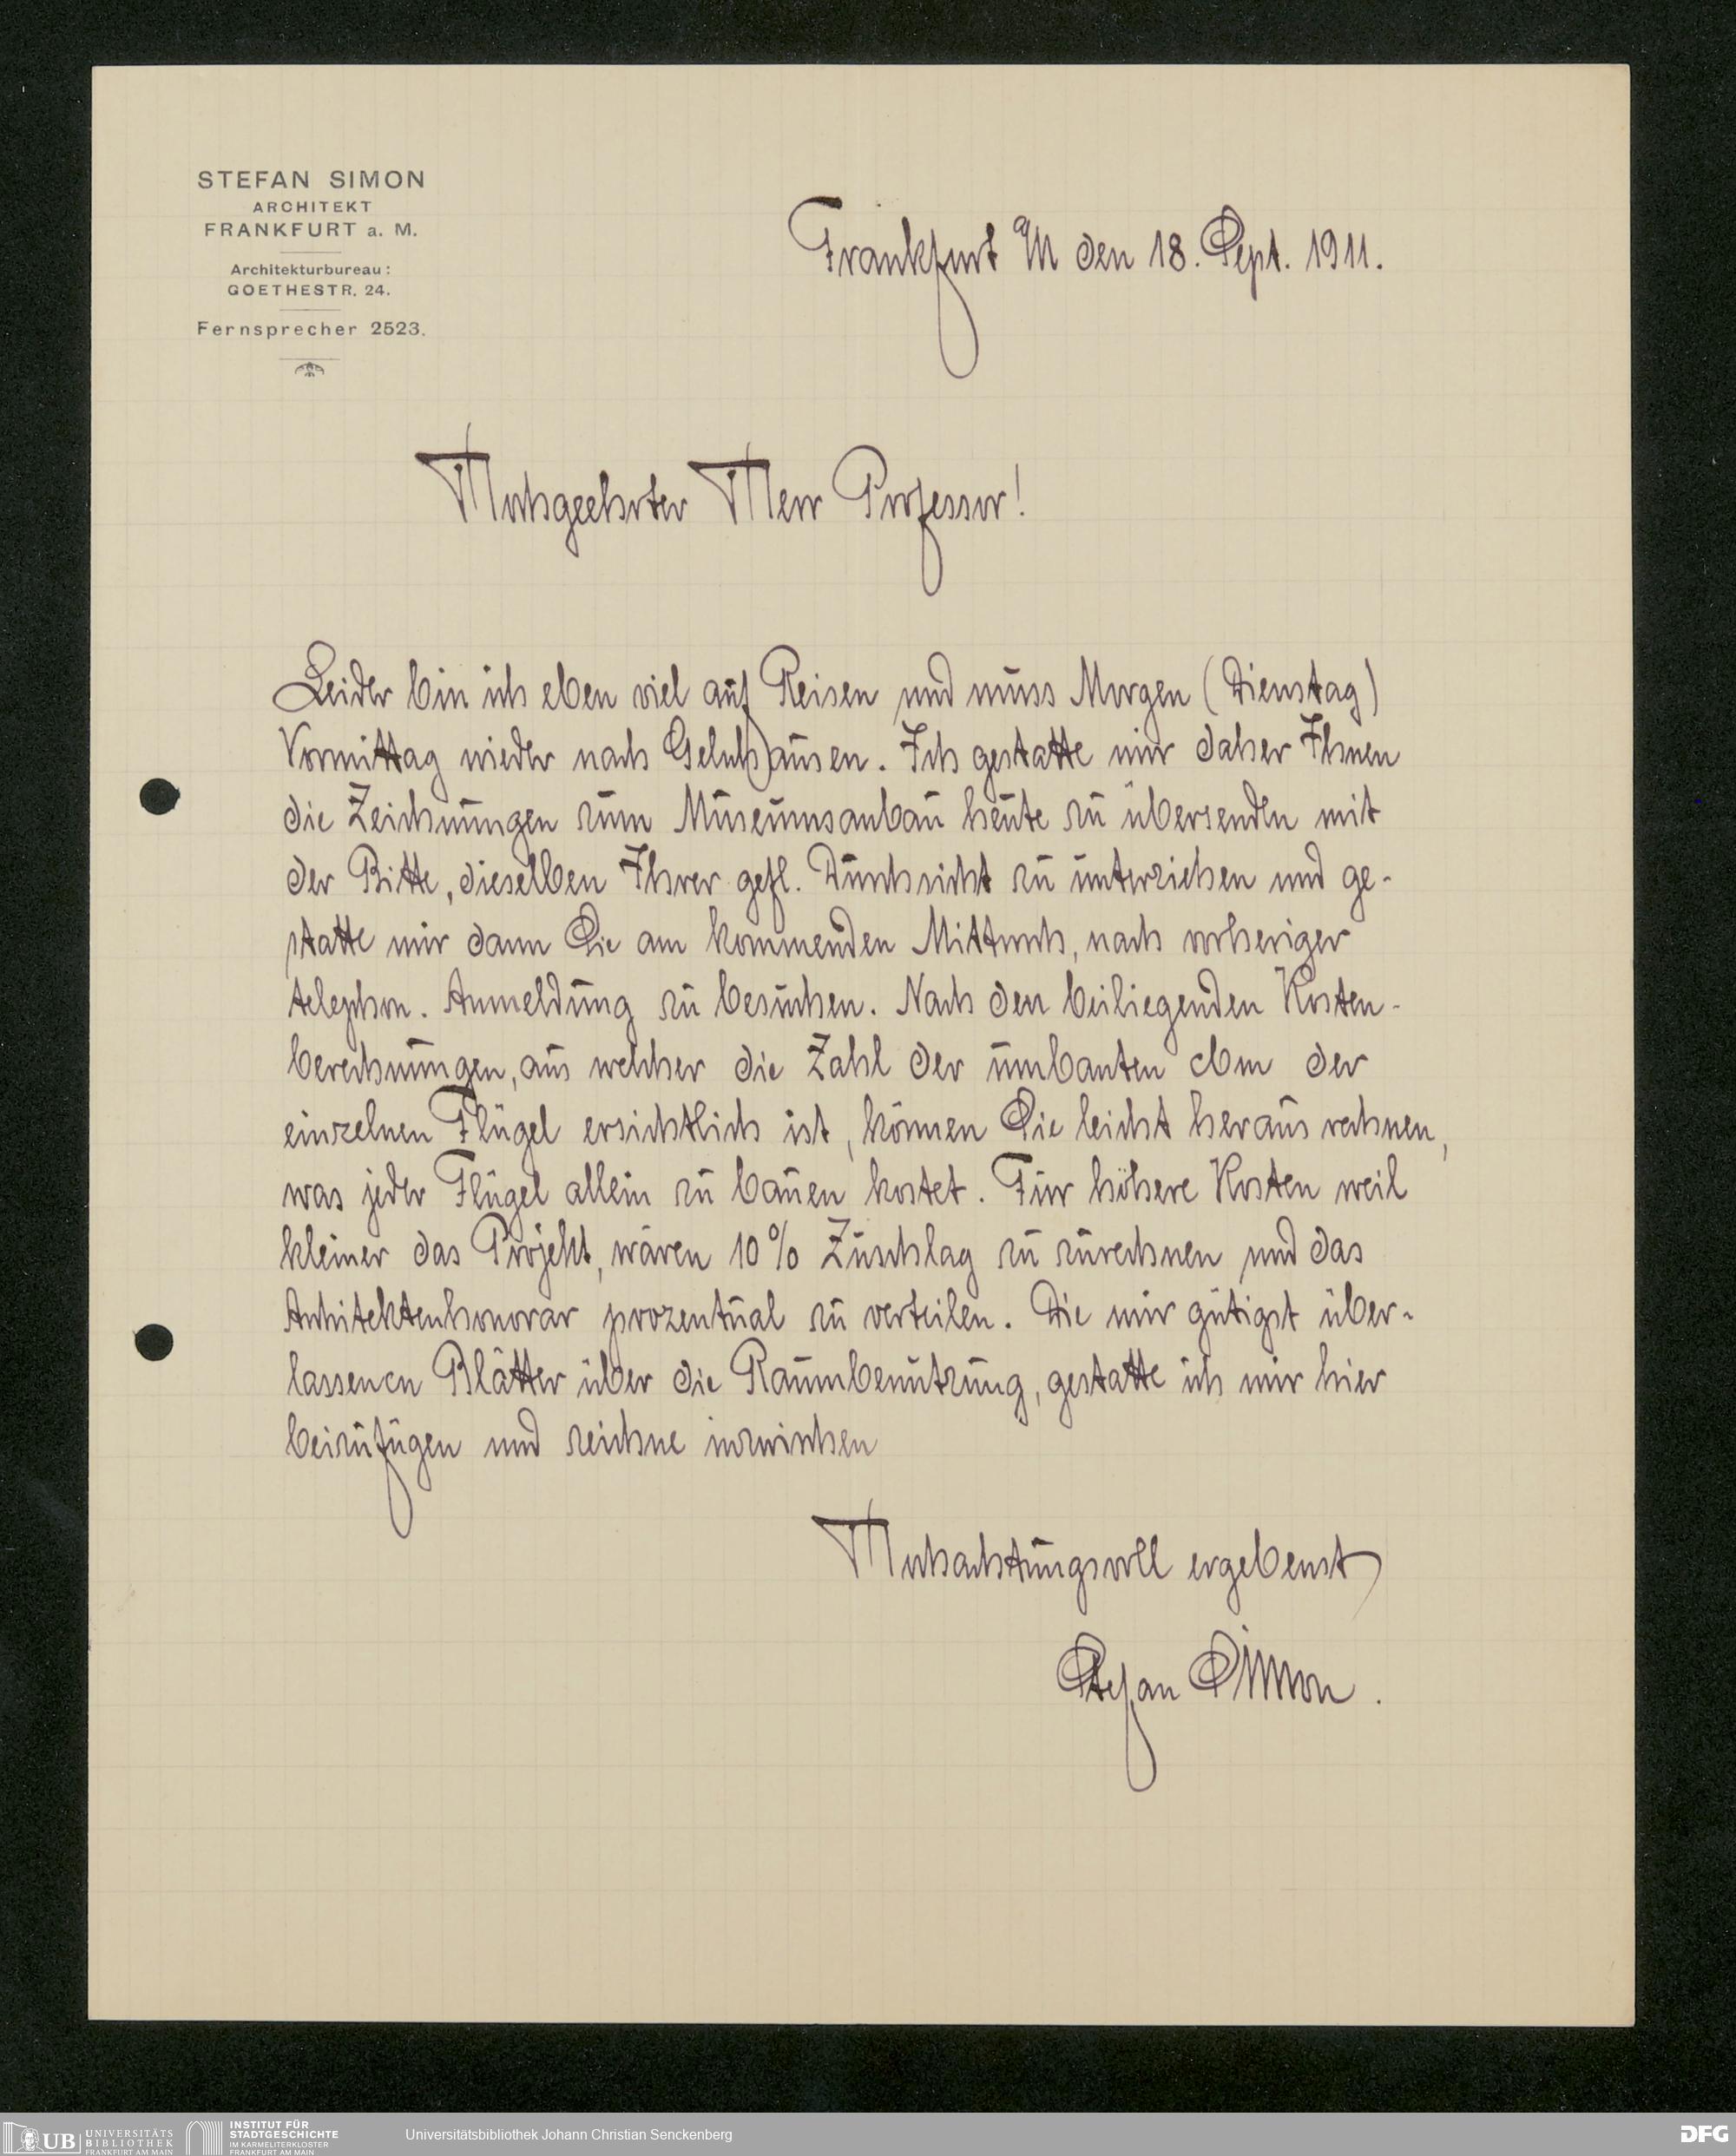 STEFAN SIMON
ARCHITEKT
FRANKFURT a. M.
Architekturbureau:
GOETHESTR. 24.
Fernsprecher 2523.
Frankfurt a/M den 18. Sept. 1911.
Hochgeehrter Herr Professor!
Leider bin ich eben viel auf Reisen und muss Morgen (Dienstag)
Vormittag wieder nach Gelnhausen. Ich gestatte mir daher Ihnen
die Zeichnungen zum Museumsanbau heute zu übersenden mit
der Bitte, dieselben Ihrer gefl. Durchsicht zu unterziehen und ge-
statte mir dann Sie am kommenden Mittwoch, nach vorheriger
telephon. Anmeldung zu besuchen. Nach den beiliegenden Kosten-
berechnungen, aus welcher die Zahl der umbauten cbm der
einzelnen Flügel ersichtlich ist, können Sie leicht heraus rechnen,
was jeder Flügel allein zu bauen kostet. Für höhere Kosten weil
kleiner das Projekt, wären 10% Zuschlag zu zurechnen und das
Architektenhonorar prozentual zu verteilen. Die mir gütigst über-
lassenen Blätter über die Raumbenutzung, gestatte ich mir hier
beizufügen und zeichne inzwischen
Hochachtungsvoll ergebenst
Stefan Simon.
UB UNIVERSITÄTS
BIBLIOTHEK
FRANKFURT AM MAIN
INSTITUT FÜR
STADTGESCHICHTE
IM KARMELITERKLOSTER
FRANKFURT AM MAIN
Universitätsbibliothek Johann Christian Senckenberg
DFG